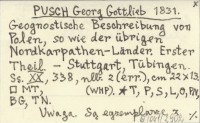 PUSCH Georg Gottlieb 1831.
Geognostische Beschreibung von
Polen, so wie der übrigen
Nordkarpathen-Länder. Erster
Theil - Stuttgart, Tübingen.
Ss. XX, 338, nlb 2 (err.), cm 22 x 13.
□ MT, (WHP) ★ T, P, S, L, O, PN,
BG, TN.
Uwaga. Są egzemplarze z